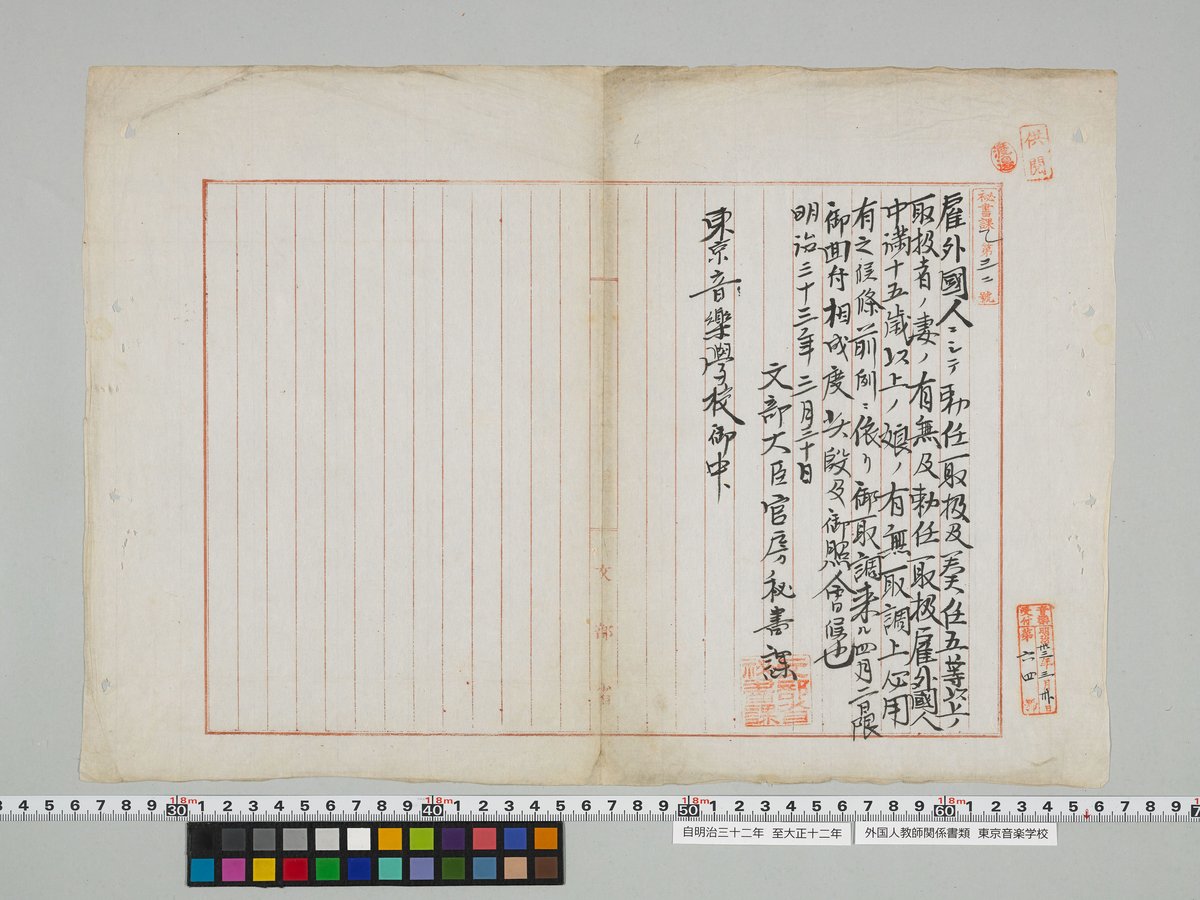 供閲
秘書課乙第三二號
雇外國人ニシテ勅任取扱及奏任五等以上ノ
取扱者ノ妻ノ有無及勅任取扱雇外國人
中満十五歳以上ノ娘ノ有無取調上必用
有之候條前例ニ依リ御取調来ル四月二日限
御回付相成度此段及御照會候也
明治三十三年三月三十日
文部大臣官房秘書課
東京音樂學校御中
音樂明治卅三年三月卅日
受付第六四號
文部省
4
自明治三十二年 至大正十二年
外国人教師関係書類 東京音楽学校